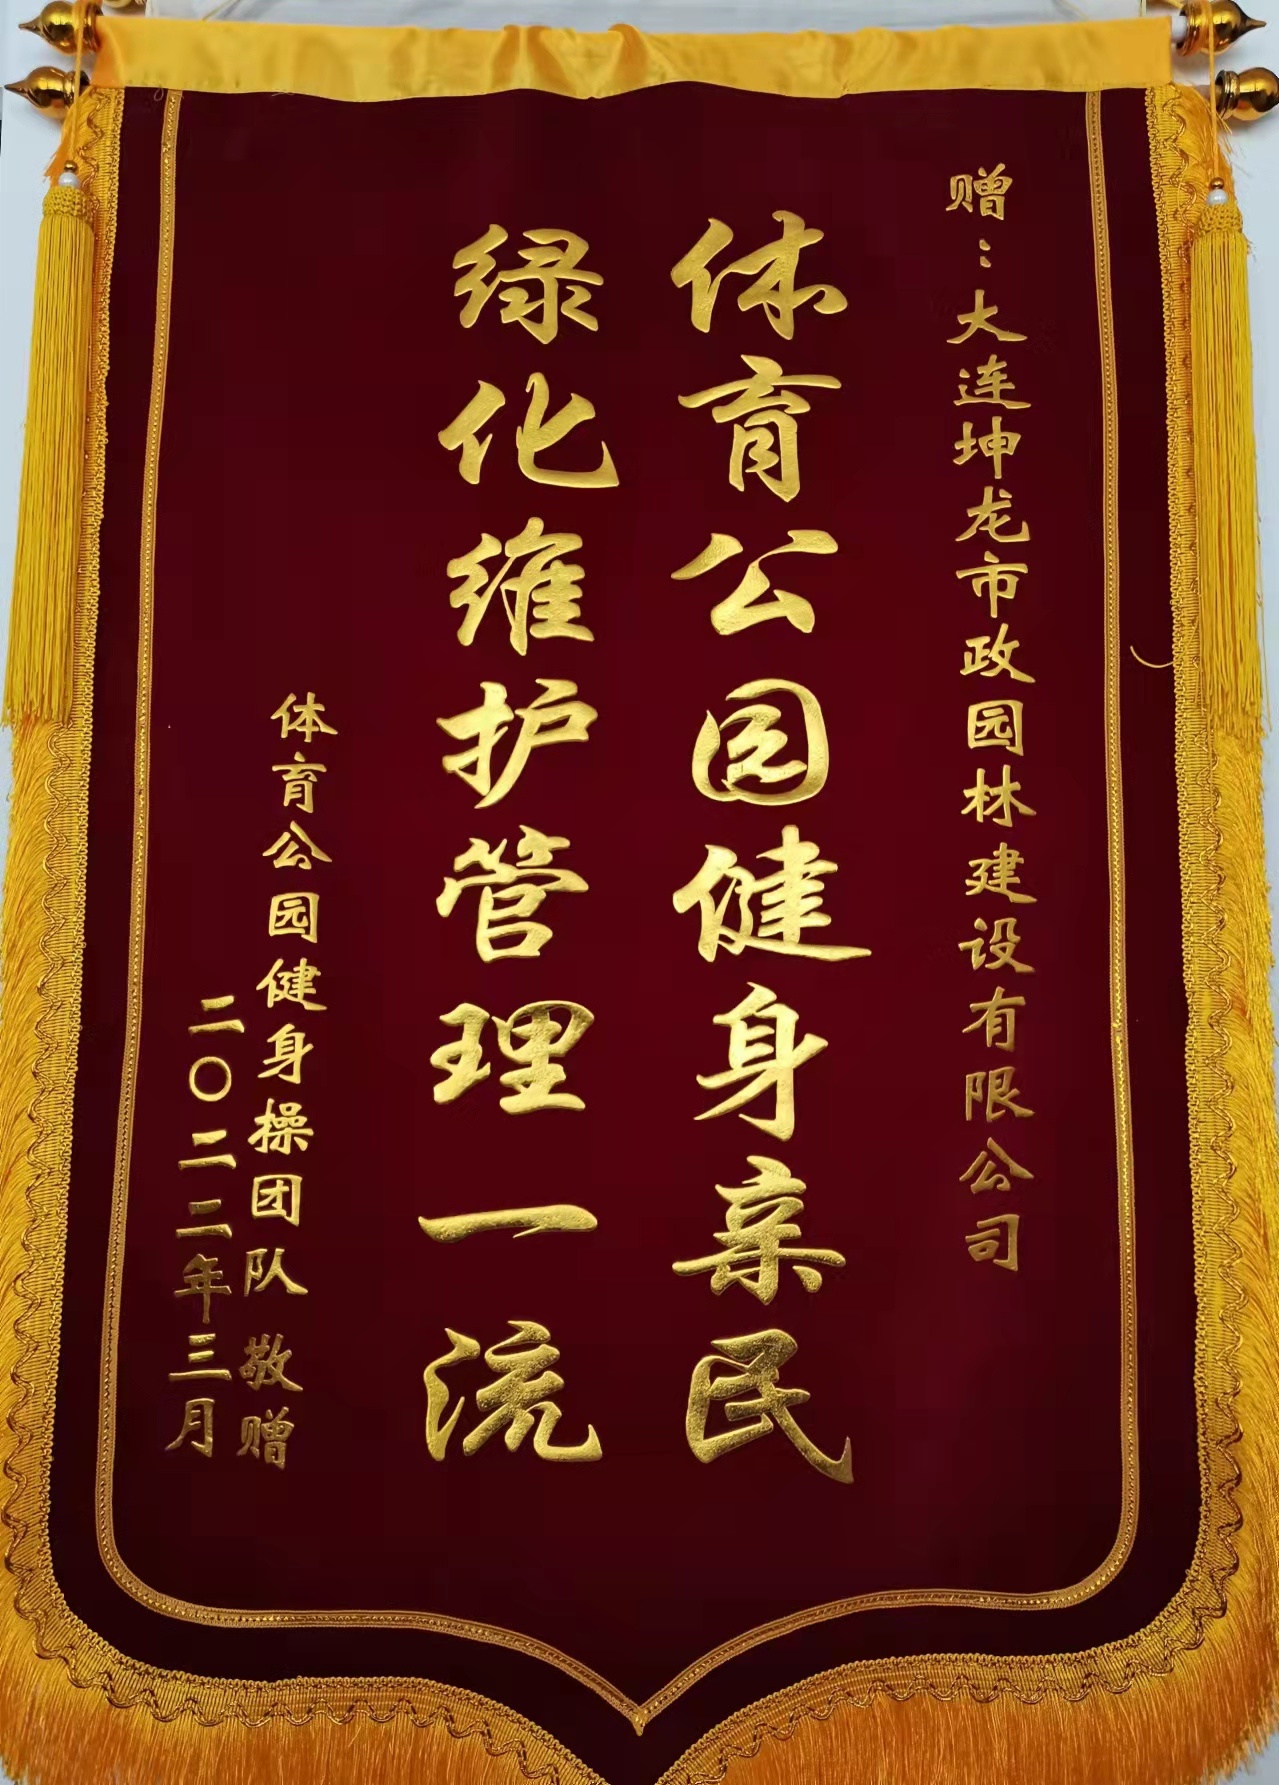 赠：大连坤龙市政园林建设有限公司
体育公园健身亲民
绿化维护管理一流
体育公园健身操团队 敬赠
二〇二二年三月